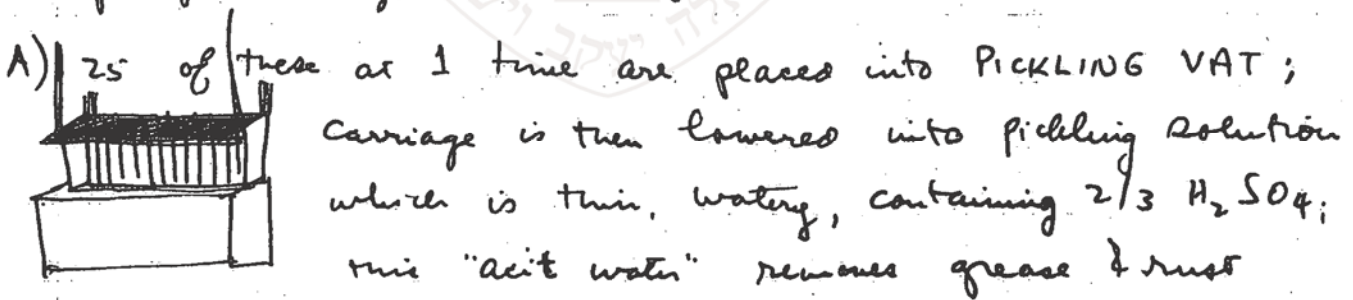 A) 25 of these at 1 time are placed into PICKLING VAT;
Carriage is then lowered into pickling solution
which is thin, watery, containing 2/3 H₂SO₄;
this "acit water" removes grease & rust